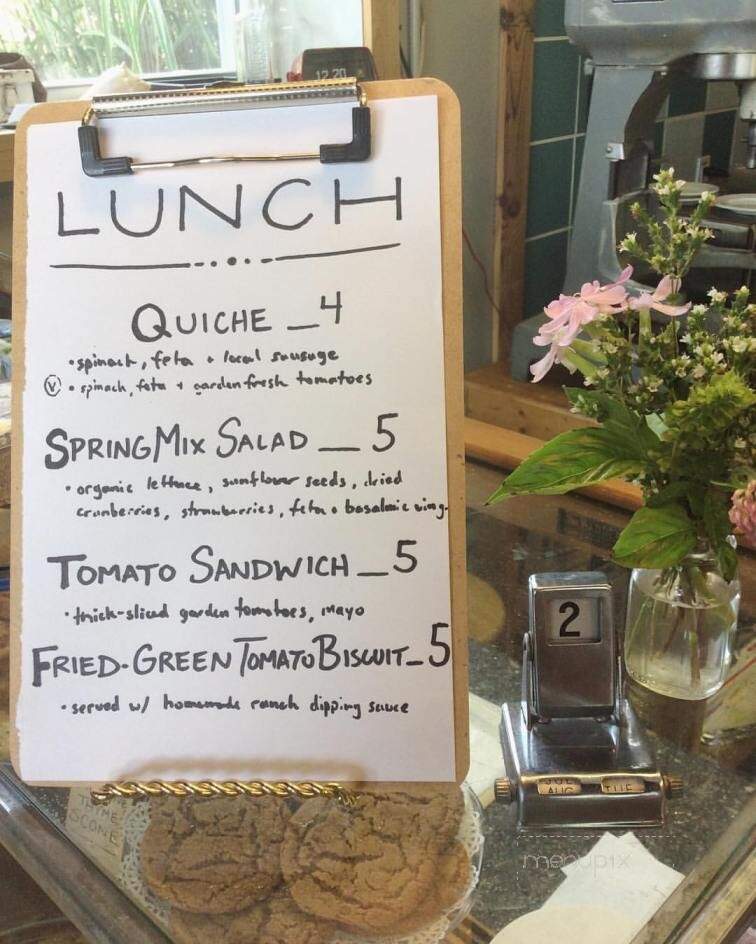 12 20
LUNCH
QUICHE _ 4
• spinach, feta + local sausage
Ⓥ • spinach, feta + garden fresh tomatoes
SPRING MIX SALAD _ 5
• organic lettuce, sunflower seeds, dried
cranberries, strawberries, feta + basalmic ving.
TOMATO SANDWICH _ 5
• thick-sliced garden tomatoes, mayo
FRIED-GREEN TOMATO BISCUIT _ 5
• served w/ homemade ranch dipping sauce
2
JUL
AUG TUE
THYME
SCONE
menupix